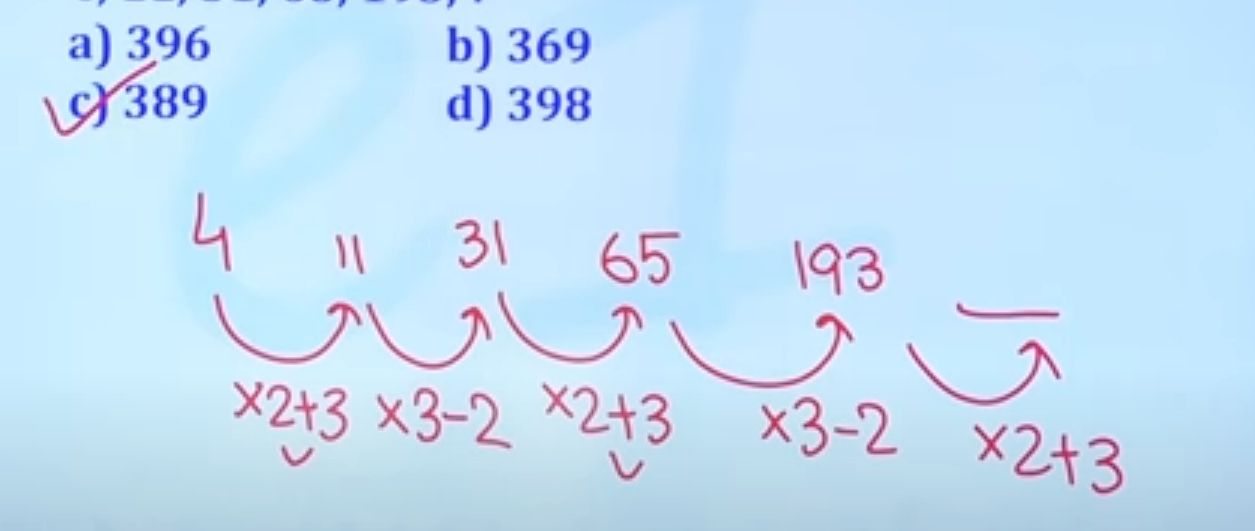 a) 396 b) 369
c) 389 d) 398
4 11 31 65 193 __
×2+3 ×3-2 ×2+3 ×3-2 ×2+3